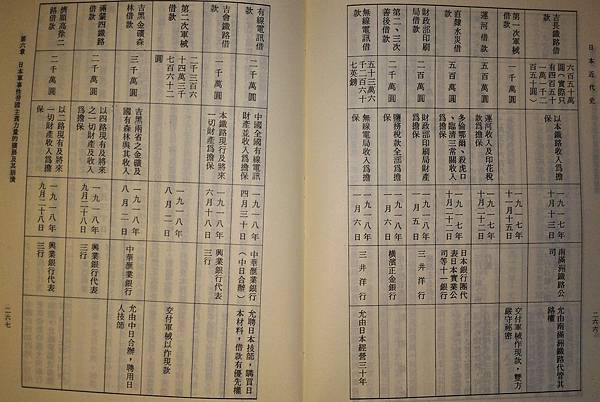 日本近代史
二六六
吉長鐵路借款
六百五十萬圓（實際只有四百五十一萬一千二百五十圓）
以本鐵路收入爲擔保
一九一七年十月十三日
南滿洲鐵路公司
允由南滿洲鐵路代管其路權
第一次軍械借款
一九一七年十一月十五日
交付軍械作現款，雙方嚴守祕密
運河借款
五百萬圓
運河收入及印花稅款爲擔保
一九一七年十一月二十二日
直隸水災借款
五百萬圓
多倫鄂爾、殺虎口、臨清三常關收入爲擔保
一九一七年十月二十二日
日本銀行團代表日本實業公司等十一銀行
財政部印刷局借款
二百萬圓
財政部印刷局財產爲擔保
一九一八年一月五日
三井洋行
第二、三次善後借款
二千萬圓
鹽務稅款全部爲擔保
一九一八年一月六日
橫濱正金銀行
無線電訊借款
五十三萬六千二百六十七英鎊
無線電局收入爲擔保
一九一八年一月六日
三井洋行
允由日本經營三十年
有線電訊借款
二千萬圓
中國全國有線電訊財產並收入爲擔保
一九一八年四月三十日
中華滙業銀行（中日合辦）
允聘日本技師，購買日本材料，借款有優先權
吉會鐵路借款
一千萬圓
本鐵路現有及將來一切財產爲擔保
一九一八年六月十八日
興業銀行代表三行
第二次軍械借款
二千三百六十四萬三千七百六十二圓
一九一八年八月二日
交付軍械以作現款
吉黑金礦森林借款
三千萬圓
吉黑兩省之金礦及國有森林與其收入爲擔保
一九一八年八月二日
中華滙業銀行
允由中日合辦，聘用日人技師
滿蒙四鐵路借款
二千萬圓
以四路現有及將來之一切財產及收入爲擔保
一九一八年九月二十八日
興業銀行代表三行
濟順高徐二路借款
二千萬圓
以二路現有及將來一切財產收入爲擔保
一九一八年九月二十八日
興業銀行代表三行
第六章　日本軍事性帝國主義力量的擴張及其崩潰
二六七